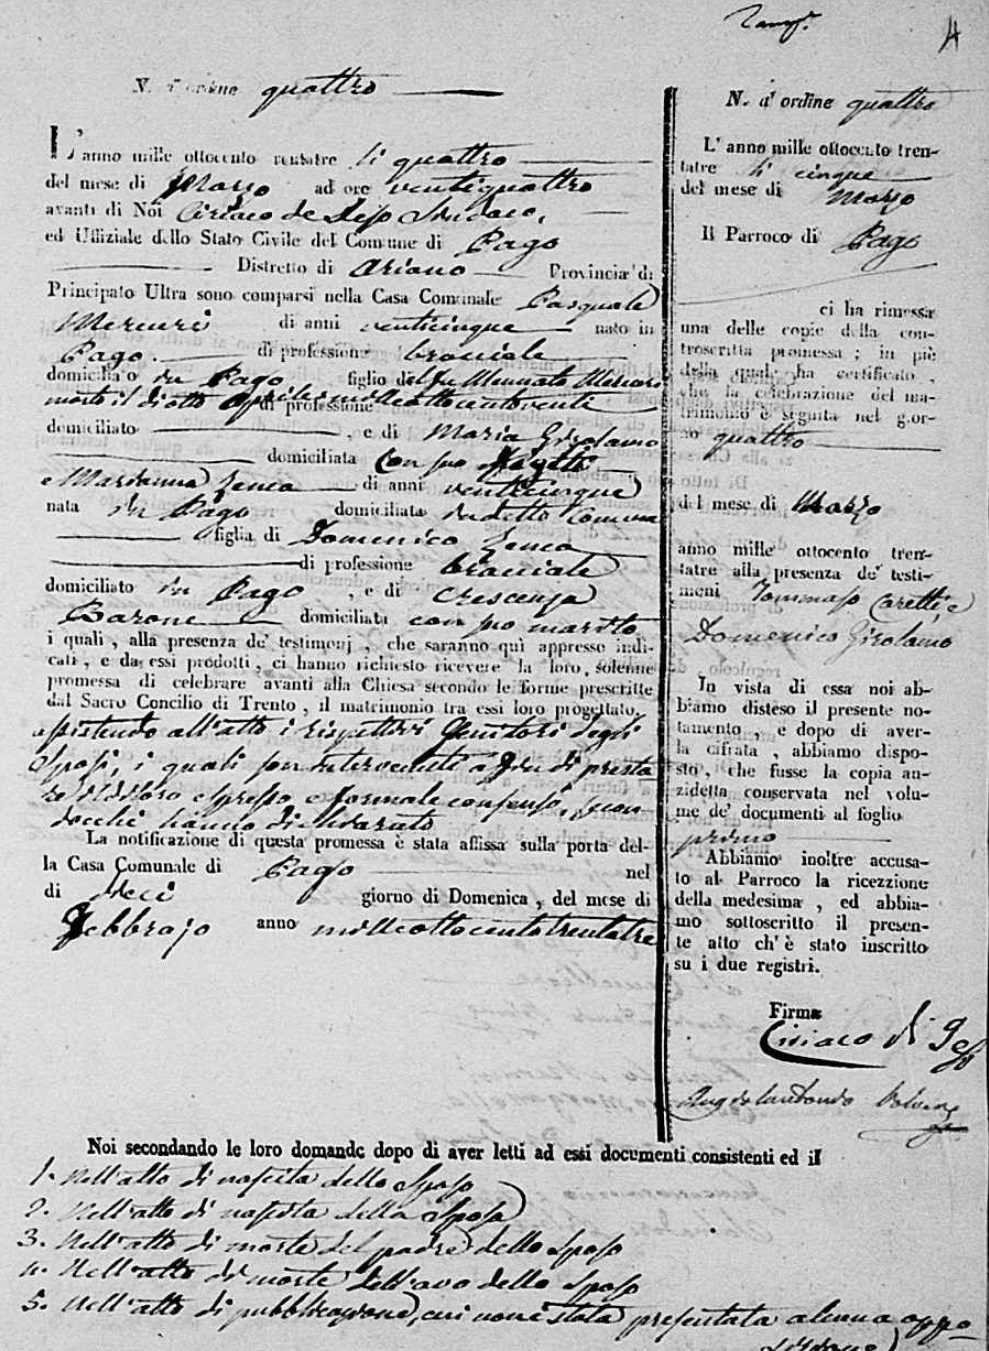 4
N. d'ordine quattro
L'anno mille ottocento trentatre li quattro
del mese di Marzo ad ore ventiquattro
avanti di Noi Ciriaco de Sindaco,
ed Uffiziale dello Stato Civile del Comune di Pago
Distretto di Ariano Provincia di
Principato Ultra sono comparsi nella Casa Comunale Pasquale
Mercuri di anni venticinque nato in
Pago. di professione bracciale
domiciliato in Pago figlio del fu Mennato Mercuri
morto il di otto Aprile milleottocentoventi di professione
domiciliato , e di Maria Girolamo
domiciliata con suo
e Marianna Zenca di anni venticinque
nata in Pago domiciliata in detto Comune
figlia di Domenico Zenca
di professione bracciale
domiciliato in Pago , e di Crescenza
Barone domiciliata con suo marito
i quali, alla presenza de' testimonj, che saranno quì appresso indi-
cati, e da essi prodotti, ci hanno richiesto ricevere la loro solenne
promessa di celebrare avanti alla Chiesa secondo le forme prescritte
dal Sacro Concilio di Trento, il matrimonio tra essi loro progettato,
assistendo all'atto i rispettivi Genitori degli
Sposi, i quali son intervenuti a fin di presta
re il di loro espresso, e formale consenso, sicon
docché hanno dichiarato
La notificazione di questa promessa è stata affissa sulla porta del-
la Casa Comunale di Pago nel
di dieci giorno di Domenica, del mese di
Febbrajo anno milleottocentotrentatre
N. d'ordine quattro
L'anno mille ottocento tren-
tatre li cinque
del mese di Marzo
Il Parroco di Pago
ci ha rimessa
una delle copie della con-
troscritta promessa; in piè
della quale ha certificato,
che la celebrazione del ma-
trimonio è seguita nel gior-
no quattro
del mese di Marzo
anno mille ottocento tren-
tatre alla presenza de' testi-
moni Tommaso Caretti e
Domenico Girolamo
In vista di essa noi ab-
biamo disteso il presente no-
tamento, e dopo di aver-
la cifrata, abbiamo dispo-
sto, che fusse la copia an-
zidetta conservata nel volu-
me de' documenti al foglio
primo
Abbiamo inoltre accusa-
to al Parroco la ricezzione
della medesima, ed abbia-
mo sottoscritto il presen-
te atto ch'è stato inscritto
su i due registri.
Firma
Ciriaco di
Noi secondando le loro domande dopo di aver letti ad essi documenti consistenti ed il
1. Nell'atto di nascita dello Sposo
2. Nell'atto di nascita della Sposa
3. Nell'atto di morte del padre dello Sposo
4. Nell'atto di morte dell'avo dello Sposo
5. Nell'atto di pubblicazione, cui non è stata presentata alcuna oppo-
sizione